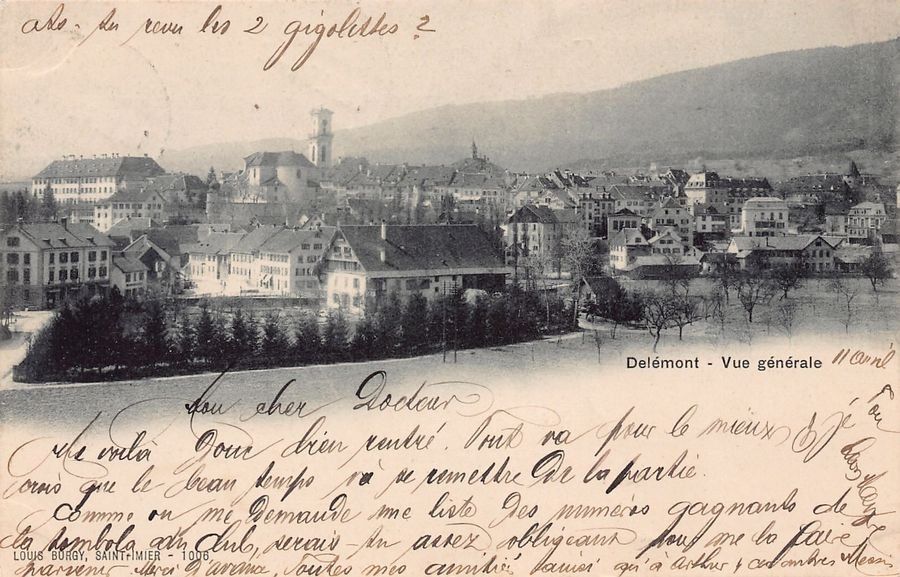 As-tu revu les 2 gigolettes?
Delémont - Vue générale
11 avril
Mon cher Docteur
Me voilà donc bien rentré. Tout va pour le mieux & je
crois que le beau temps va se remettre de la partie.
Comme on me demande une liste des numéros gagnants de
la tombola du club, serais-tu assez obligeant pour me la faire
parvenir. Merci d'avance, toutes mes amitiés ainsi qu'à Arthur & ces autres Messi
Ton
LOUIS BURGY, SAINT-IMIER - 1006